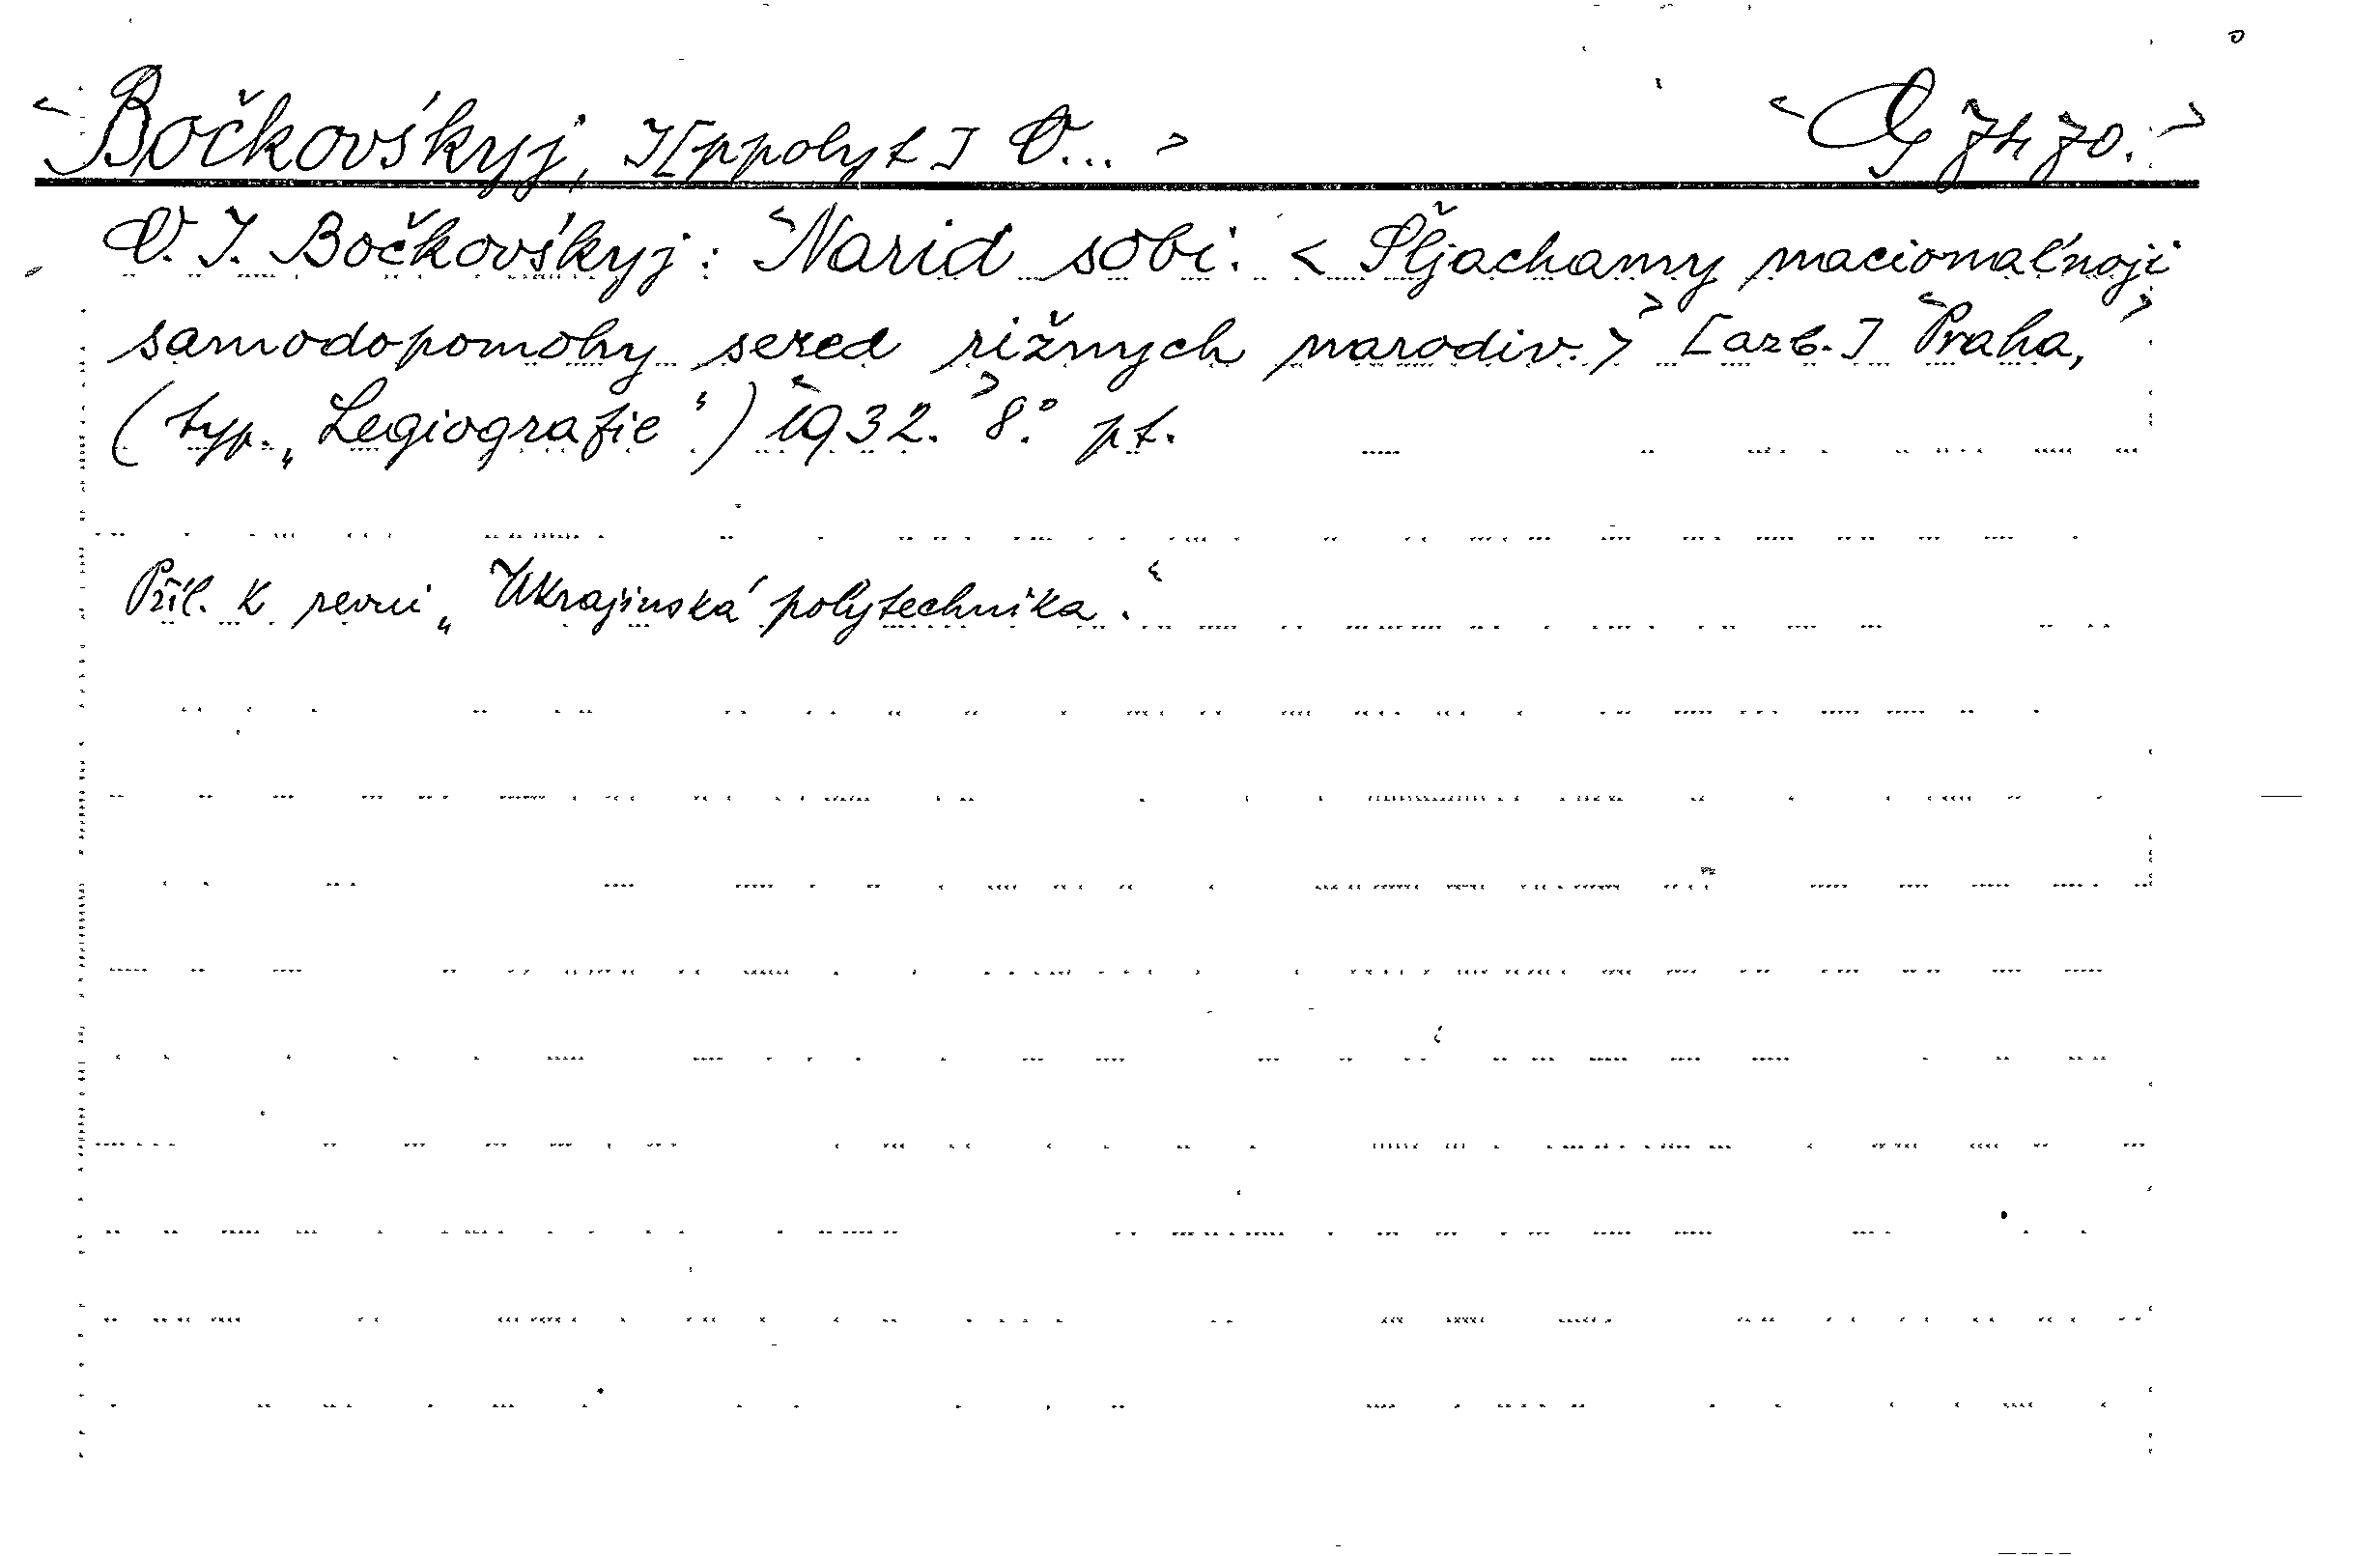 Bočkovśkyj, I[ppolyt] O... G 7470.
O. I. Bočkovśkyj: Narid sobi. < Šljachamy nacionaľnoji
samodopomohy sered rižnych narodiv. > [azb.] Praha,
(typ. „Legiografie“) 1932. 8°. pt.
Příl. k revui „Ukrajinská polytechnika.“